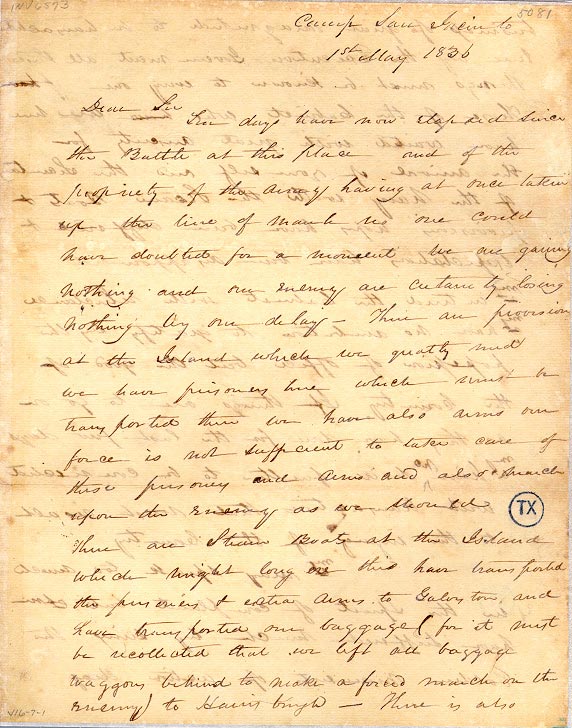 INV 6573
5081
Camp San Jacinto
1st May 1836
Dear Sir
Ten days have now elapsed since
the Battle at this place and of the
propriety of the army having at once taken
up the line of march no one could
have doubted for a moment. We are gaining
nothing and our enemy are certainly losing
nothing by our delay – There are provision
at the Island which we greatly need
we have prisoners here which must be
transported there we have also arms our
force is not sufficient to take care of
these prisoners and arms and also march
upon the Enemy as we should
TX
There are Steam Boats at the Island
which might long ere this have transported
the prisoners & extra arms to Galveston, and
have transported our baggage (for it must
be recollected that we left all baggage
waggons behind to make a forced march on the
Enemy) to Harrisburgh – There is also
V16-7-1